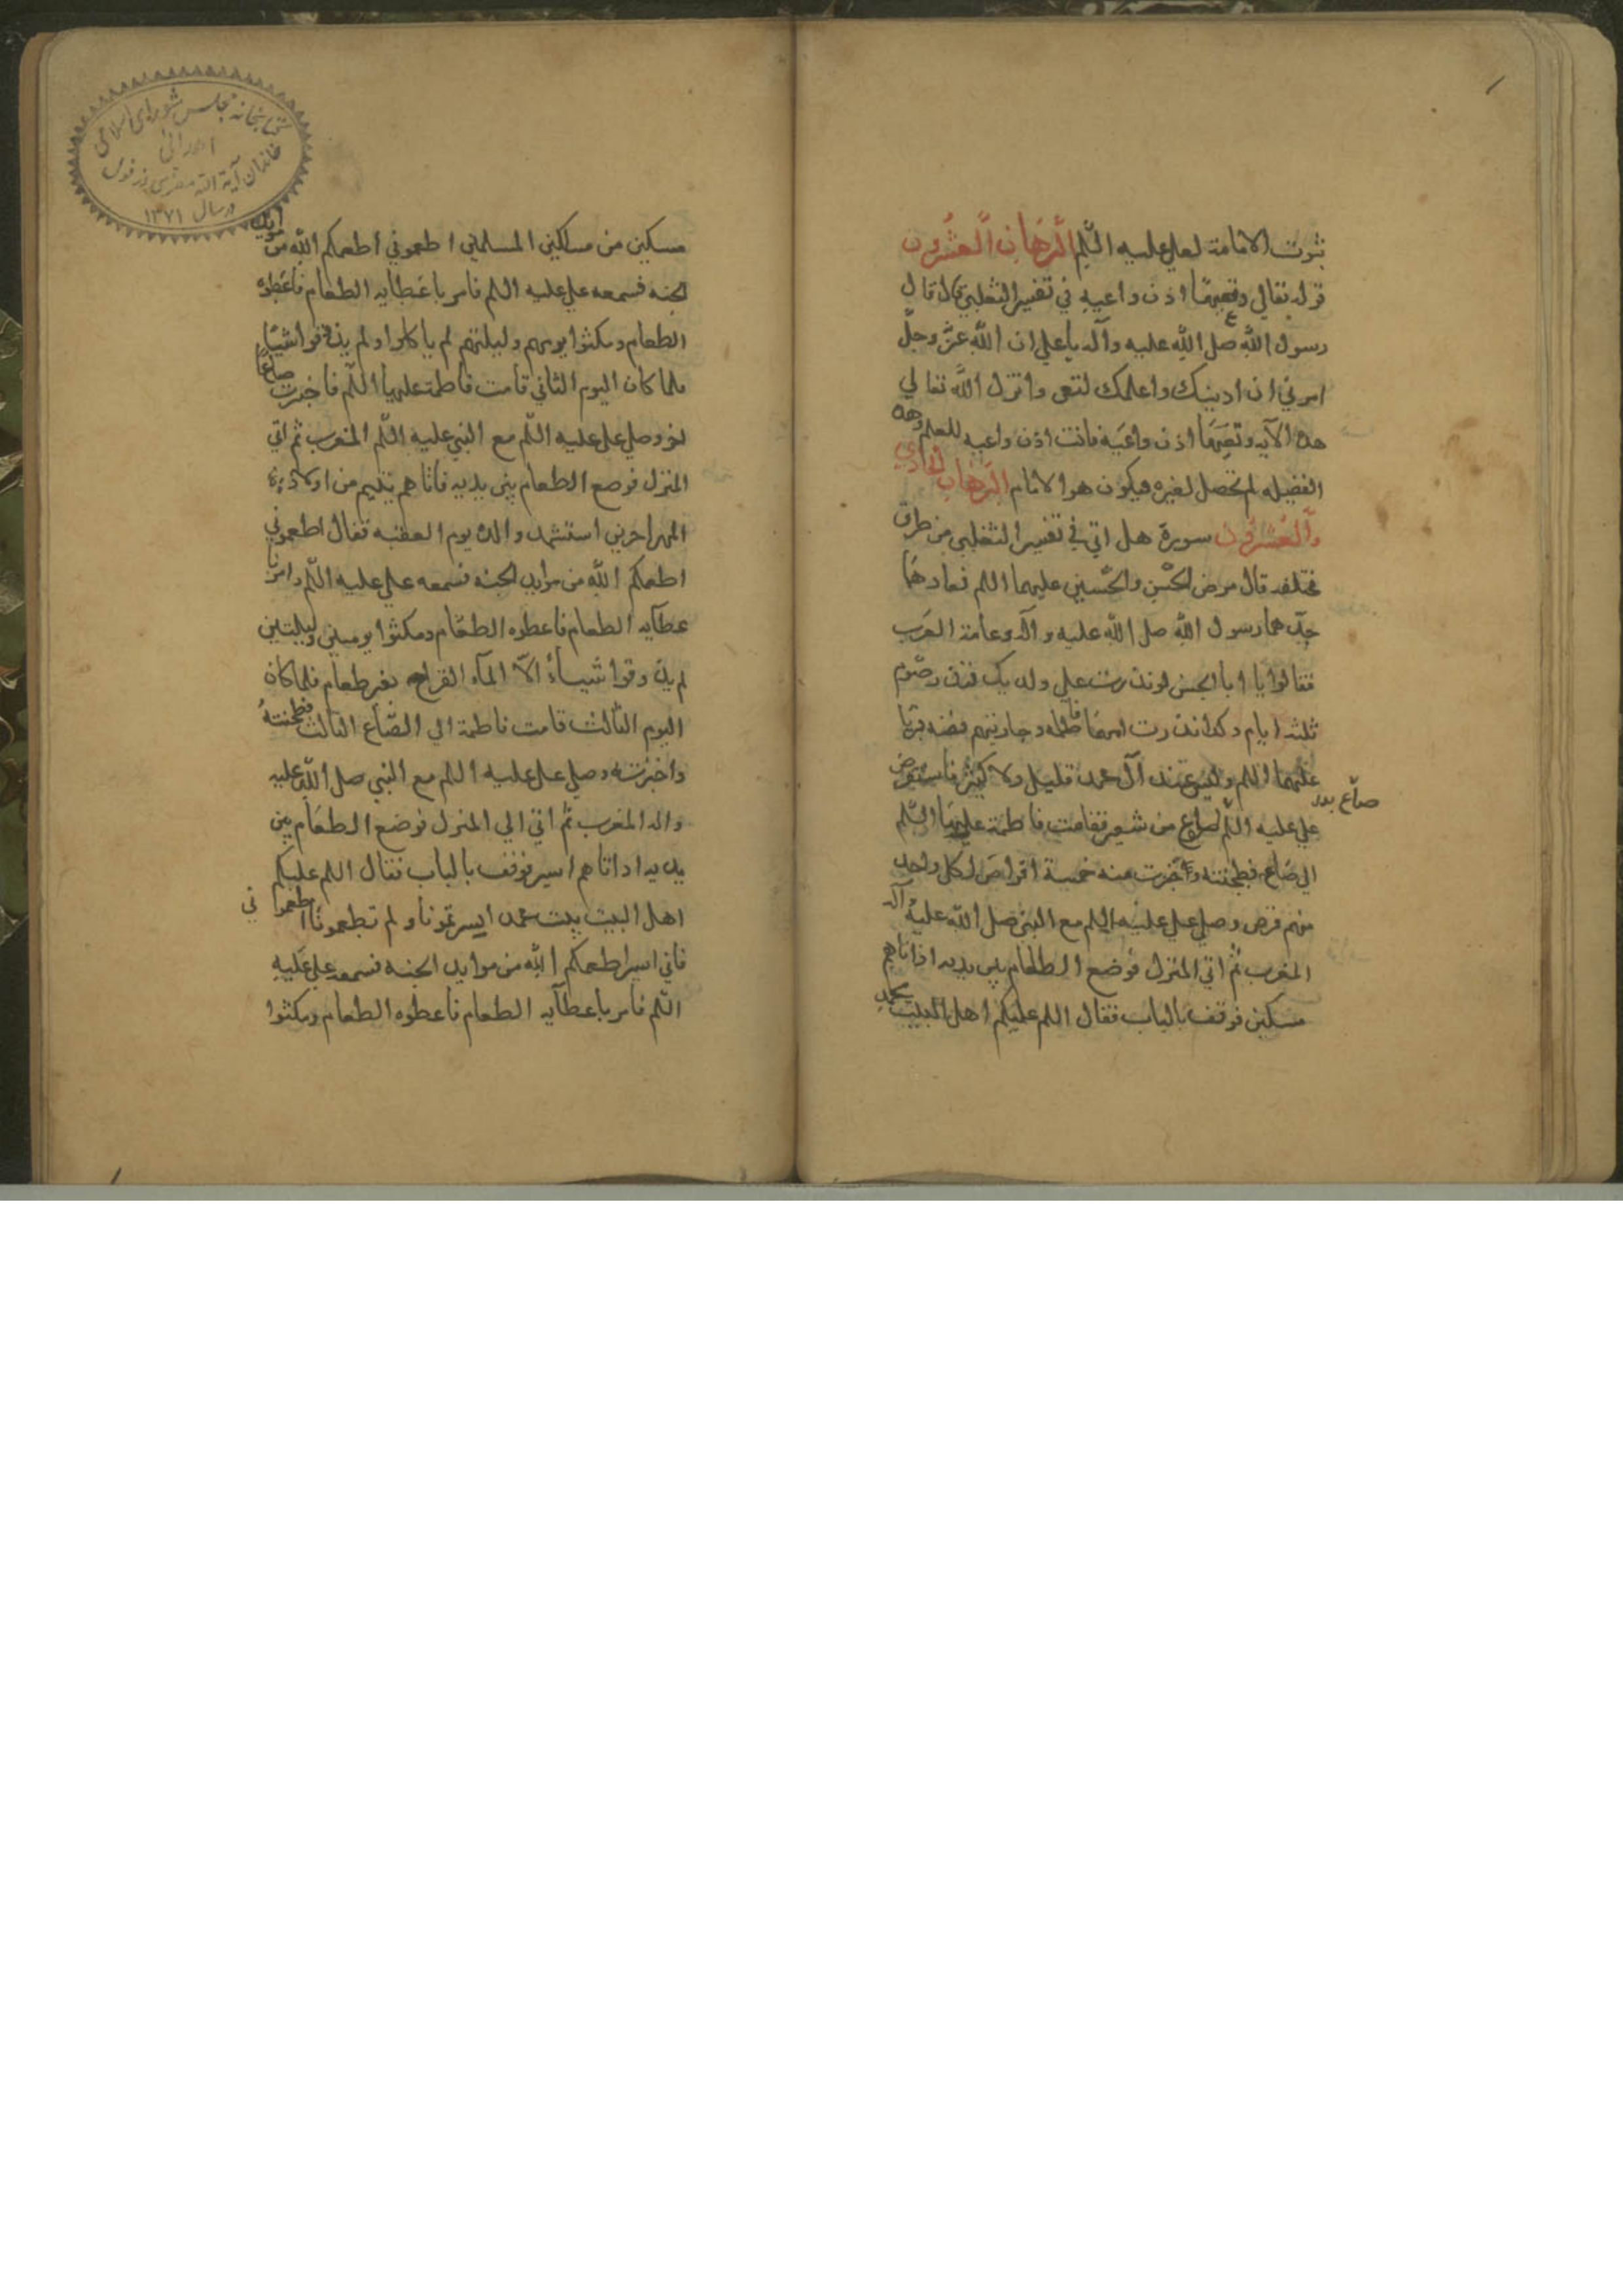 ثبوت الامامة لعلي عليه السّلم البرهان العشرون
قوله تعالى وتعيها اذن واعيه في تفسير الثعلبي قال قال
رسول اللّه صلى اللّه عليه وآله يا علي ان اللّه عزّ وجلّ
امرني ان ادنيك واعلمك لتعى وانزل اللّه تعالى
هذه الآيه وتعيها اذن واعيه فانت اذن واعيه للعلم وهذه
الفضيله لم تحصل لغيره فيكون هو الامام البرهان الحادي
والعشرون سورة هل اتى في تفسير الثعلبي من طرق
مختلفه قال مرض الحسن والحسين عليهما اللم فعادهما
جدّهما رسول اللّه صلى اللّه عليه وآله وعامة العرب
فقالوا يا ابا الحسن لو نذرت على ولديك فنذر صوم
ثلثه ايام وكذا نذرت امهما فاطمه وجاريتهم فضه فبرئا
عليهما اللم وليس عند آل محمد قليل ولا كثير فاستقرض
علي عليه اللّم اصوع من شعير فقامت فاطمة عليها السّلم
صاع
الى صاع فطحنته واخبزت منه خمسة اقراص لكل واحد
منهم قرص وصلى علي عليه اللم مع النبي صلى اللّه عليه وآله
المغرب ثم اتى المنزل فوضع الطعام بين يديه اذ اتاهم
مسكين فوقف بالباب فقال اللم عليكم اهل البيت محمد
كتابخانه مجلس شوراى اسلامى
اهدائى
خاندان آية الله
در سال ١٣٧١
مسكين من مساكين المسلمين اطعموني اطعمكم اللّه من موايد
الجنه فسمعه علي عليه اللم فامر باعطايه الطعام فاعطوه
الطعام ومكثوا يومهم وليلتهم لم ياكلوا ولم يذوقوا شيئا
فلما كان اليوم الثاني قامت فاطمة عليها اللّم فاخبزت صاعا
اخر وصلى علي عليه اللّم مع النبي عليه اللّم المغرب ثم اتى
المنزل فوضع الطعام بين يديه فاتاهم يتيم من اولاد
المهاجرين استشهد والده يوم العقبه فقال اطعموني
اطعمكم اللّه من موايد الجنه فسمعه علي عليه اللّم وامر با
عطايه الطعام فاعطوه الطعام ومكثوا يومين وليلتين
لم يذوقوا شيئا الّا المآء القراح بغير طعام فلما كان
اليوم الثالث قامت فاطمة الى الصّاع الثالث فطحنته
واخبزته وصلى علي عليه اللم مع النبي صلى اللّه عليه
واله المغرب ثم اتى الى المنزل فوضع الطعام بين
يديه اذ اتاهم اسير فوقف بالباب فقال اللم عليكم
اهل البيت بيت محمد ايسرتمونا ولم تطعمونا اطعموا ني
فاني اسير اطعمكم اللّه من موايد الجنه فسمعه علي عليه
اللّم فامر باعطآيه الطعام فاعطوه الطعام ومكثوا